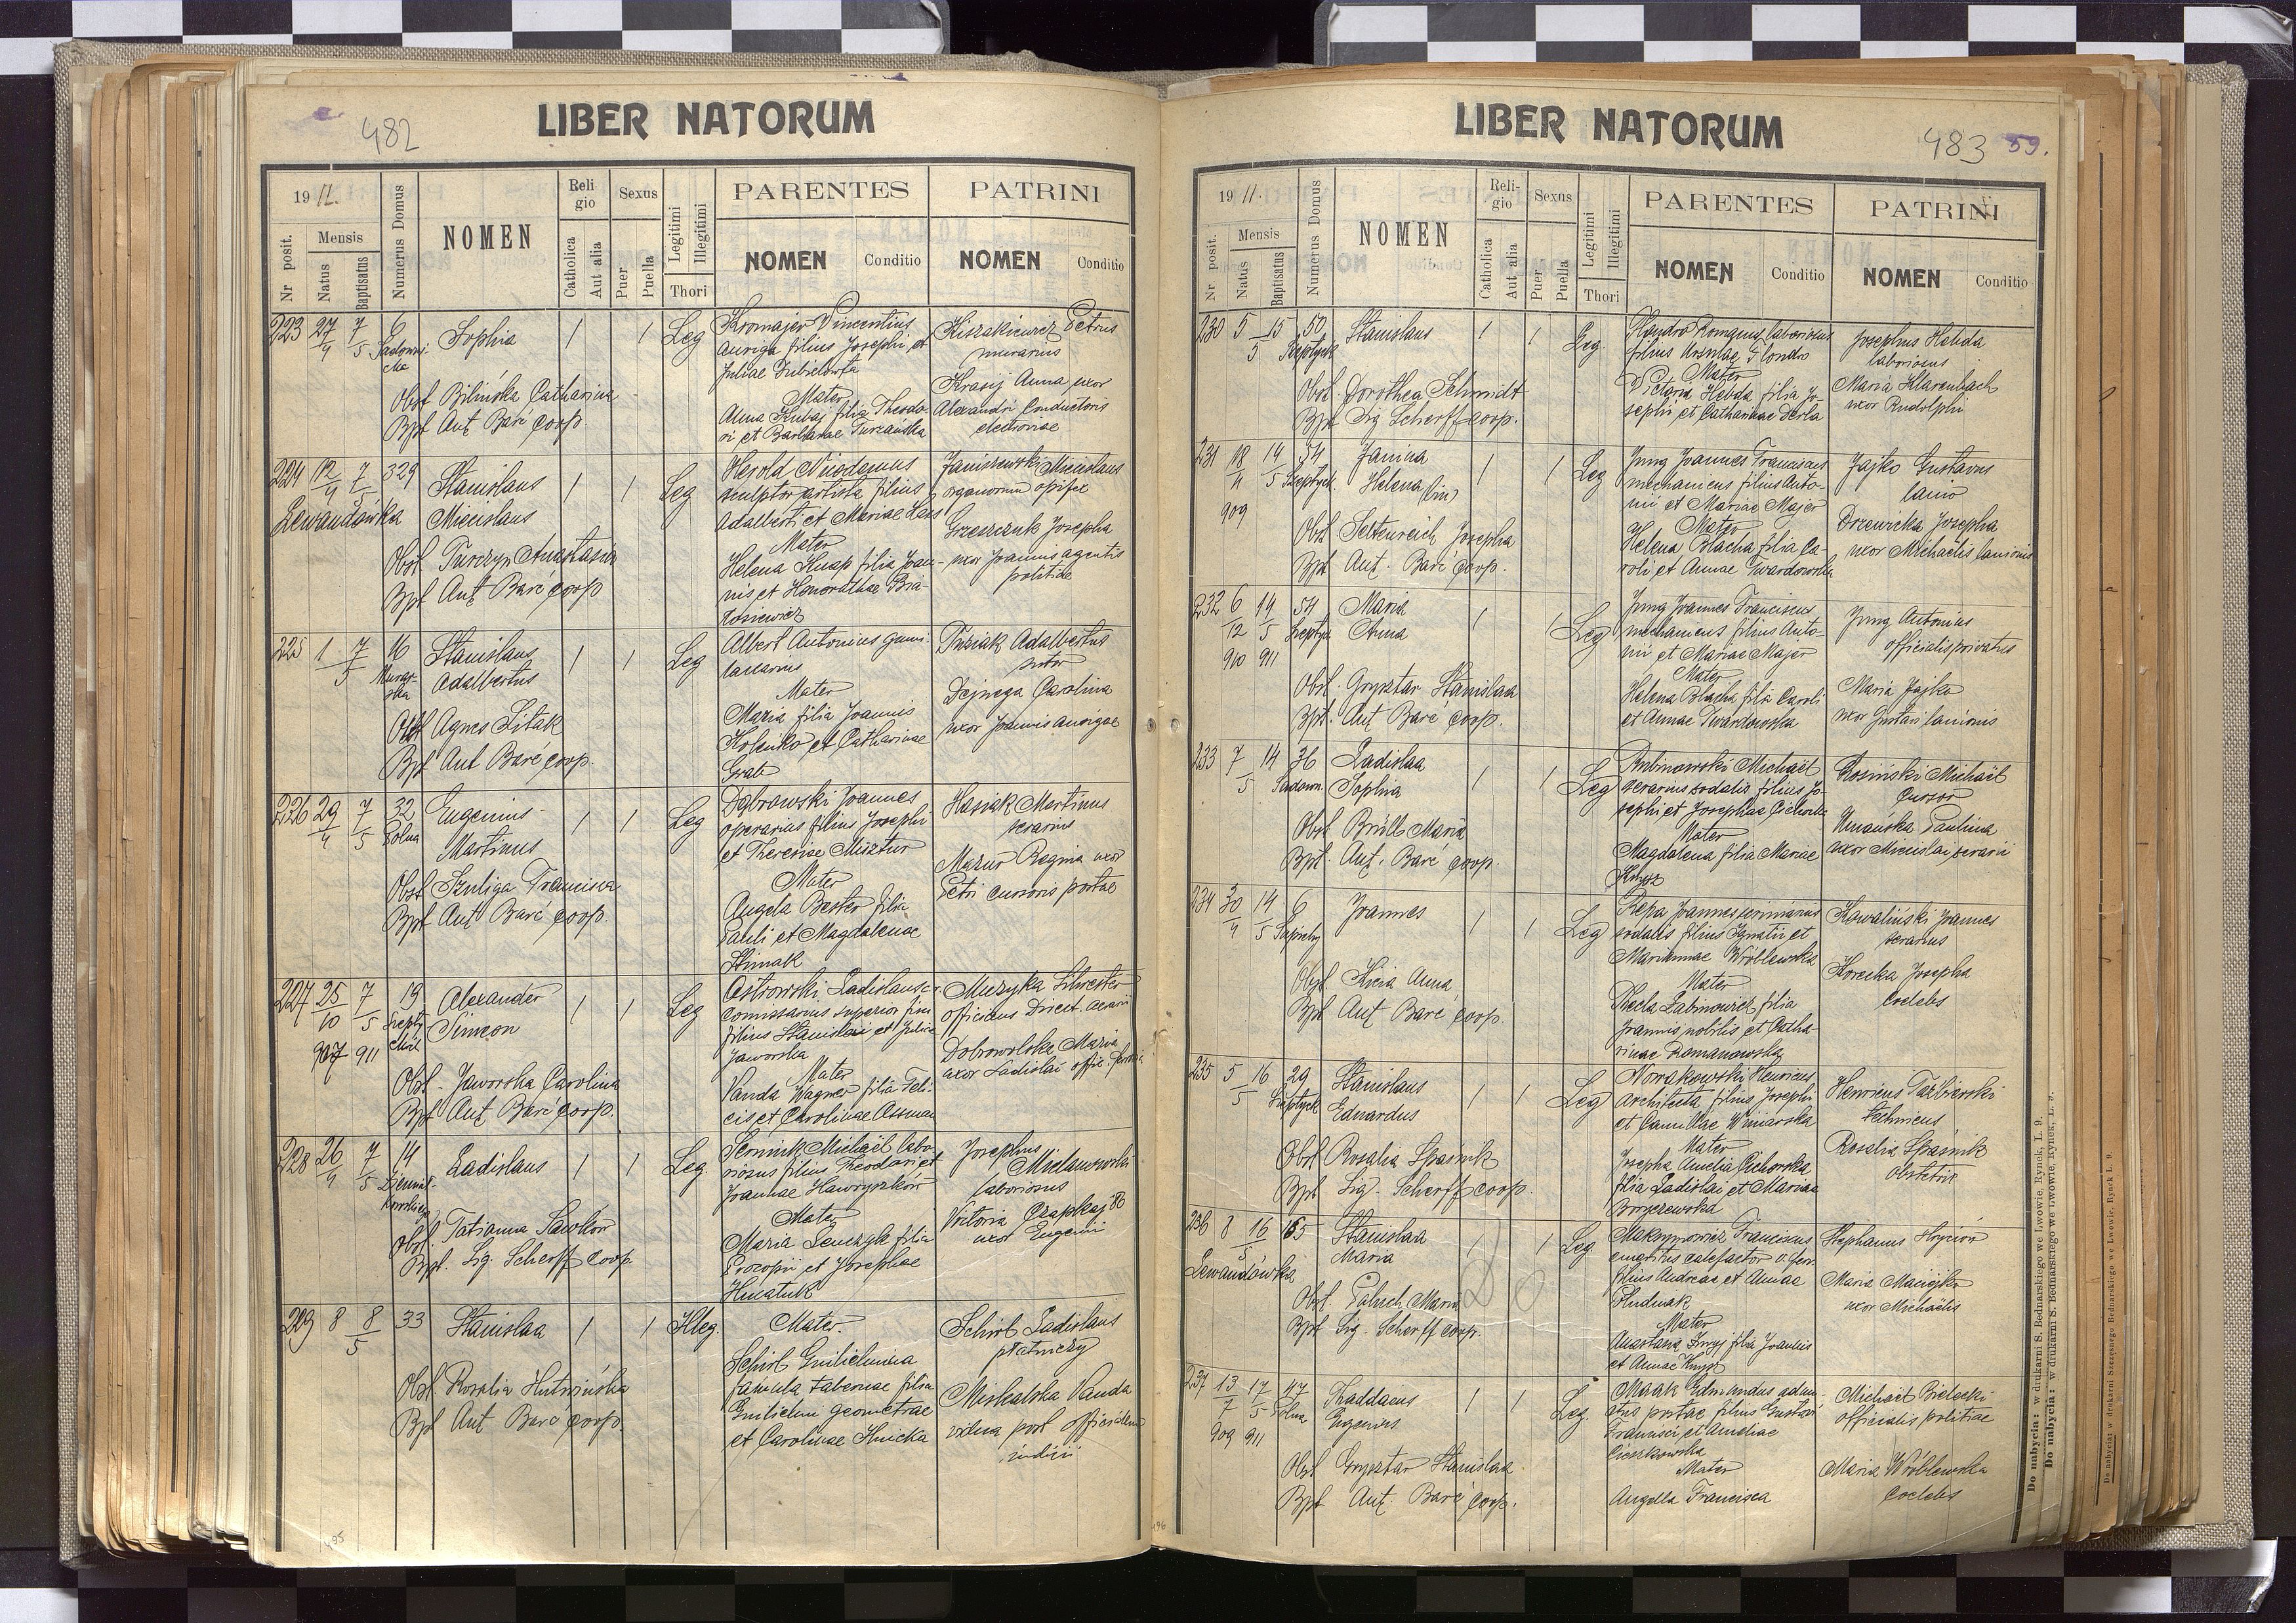 482
LIBER NATORUM
19 11.
Nr posit.
Mensis
Natus
Baptisatus
Numerus Domus
NOMEN
Religio
Catholica
Aut alia
Sexus
Puer
Puella
Legitimi
Illegitimi
Thori
PARENTES
NOMEN Conditio
PATRINI
NOMEN Conditio
223 27/4 7/5 6 Sophia 1 1 Leg
Kromajer Vincentius
auriga filius Josephi et
Juliae
Mater
Anna Kubaj filia Theodo-
ri et Barbarae Turzańska
Petrus
murarius
Krasij Anna uxor
Alexandri Conductoris
Obst Bilińska Catharina
Bpt Ant Barć coop.
224 12/4 7/5 329 Stanislaus
Miecislaus 1 1 Leg
Lewandówka
Herold Nicodemus
sculptor artista filius
Adalberti et Mariae
Mater
Helena Knap filia Joan-
nis et Honorathae
Janiszewski Miecislaus
organorum opifex
Grzeszczuk Josepha
uxor Joannis agentis
politiae
Obst Turczyn Anastasia
Bpt Ant Barć coop
225 1 7/5 16 Stanislaus
Adalbertus 1 1 Leg
Albert Antonius
Mater
Maria filia Joannis
et Catharinae
Grab
Adalbertus
sutor
Dejnega Carolina
uxor Joannis aurigae
Obst Agnes Sitak
Bpt Ant Barć coop.
226 29/4 7/5 32 Eugenius
Polna Martinus 1 1 Leg
Dąbrowski Joannes
operarius filius Josephi
et Theresiae Misztur
Mater
Angela Bester filia
Pauli et Magdalenae
Hasiak Martinus
serarius
Mazur Regina uxor
Petri cursoris postae
Obst Szuliga Francisca
Bpt Ant Barć coop.
227 25/10 7/5 19 Alexander
Simeon 1 1 Leg
907 911
Ostrowski Ladislaus
comissarius superior
filius Stanislai et Juliae
Jaworska
Mater
Vanda Wagner filia Feli-
cis et Carolinae
Muzyka Silvester
officians Direct.
Dobrowolska Maria
uxor Ladislai
Obst. Jaworska Carolina
Bpt Ant Barć coop.
228 26/4 7/5 14 Ladislaus 1 1 Leg.
Michaël labo-
riosus filius Theodori et
Joannae Hawryszków
Mater
Maria Senczyk filia
Procopii et Josephae
Josephus
laboriosus
Victoria
uxor Eugenii
Obst. Tatianna Sawków
Bpt. Sig. Scherff coop
229 8 8/5 33 Stanislaa 1 1 Illeg.
Mater.
Schirb Guilielmina
famula tabernae filia
Guilielmi geometrae
et Carolinae Hnicka
Schirb Ladislaus
płatniczy
Vanda
vidua post officialem
Obst. Rosalia
Bpt Ant Barć coop.
495
LIBER NATORUM
483 59.
19 11.
Nr posit.
Mensis
Natus
Baptisatus
Numerus Domus
NOMEN
Religio
Catholica
Aut alia
Sexus
Puer
Puella
Legitimi
Illegitimi
Thori
PARENTES
NOMEN Conditio
PATRINI
NOMEN Conditio
230 5 15/5 50 Stanislaus 1 1 Leg.
Romanus laboriosus
filius Ursulae
Mater
Victoria Hebda filia Jo-
sephi et Catharinae
Josephus Hebda
laboriosus
Maria Klarenbach
uxor Rudolphi
Obst. Dorothea Schmidt
Bpt Sig Scherff coop.
231 18/4 14/5 54 Janina
Szeptyck. Helena (bin) 1 1 Leg
909
Jung Joannes Franciscus
mechanicus filius Anto-
nii et Mariae Majer
Mater
Helena Blacha filia Ca-
roli et Annae Twardowska
Jajko Gustavus
lanio
Drzewicka Josepha
uxor Michaëlis lanionis
Obst Seltenreich Josepha
Bpt Ant. Barć coop.
232 6/12 14/5 54 Maria
Anna 1 1 Leg
910 911
Jung Joannes Franciscus
mechanicus filius Anto-
nii et Mariae Majer
Mater
Helena Blacha filia Caroli
et Annae Twardowska
Jung Antonius
officialis privatus
Maria Jajko
uxor Gustavi lanionis
Obst. Grysztar Stanislaa
Bpt. Ant Barć coop.
233 7 14/5 36 Ladislaa
Sadown. Sophia 1 1 Leg
Michaël
serarius sodalis filius Jo-
sephi et Josephae
Mater
Magdalena filia Mariae
Knysz
Rosiński Michaël
cursor
Paulina
uxor Miecislai serarii
Obst. Brüll Maria
Bpt. Ant. Barć coop.
234 30/4 14/5 6 Joannes 1 1 Leg
Sapiehy
Repa Joannes
sodalis filius Ignatii et
Mariannae Wróblewska
Mater
Thecla Labinowicz filia
Joannis nobilis et Catha-
rinae Romanowska
Kowaliński Joannes
serarius
Horecka Josepha
coelebs
Obst. Kicia Anna
Bpt Ant Barć coop.
235 5 16/5 29 Stanislaus
Szeptyck Eduardus 1 1 Leg
Nowakowski Henricus
architecta filius Josephi
et Camillae Winiarska
Mater
Josepha Amelia Cichorska
filia Ladislai et Mariae
Boryczewska
Henricus
technicus
Rosalia Spaśnik
obstetrix
Obst Rosalia Spaśnik
Bpt Sig. Scherff coop.
236 8 16/5 165 Stanislaa
Lewandówka Maria 1 1 Leg.
Maksymowicz Franciscus
emeritus calefactor v. ferr.
filius Andreae et Annae
Hudniak
Mater
Anastasia filia Joannis
et Annae Knysz
Stephanus Hryciów
Maria Maciejko
uxor Michaëlis
Obst. Paluch Maria
Bpt Sig. Scherff coop.
237 13/7 17/5 47 Thaddaeus
Polna Eugenius 1 1 Leg.
909 911
Maak Edmundus
postae filius Gustavi
Francisci et Ameliae
Cieszkowska
Mater
Angella Francisca
Michaël Bielecki
officialis politiae
Maria Wróblewska
coelebs
Obst Grysztar Stanislaa
Bpt Ant. Barć coop.
496
Do nabycia: w drukarni S. Bednarskiego we Lwowie, Rynek, L. 9.
Do nabycia: w drukarni S. Bednarskiego we Lwowie, Rynek, L. 9.
Do nabycia: w drukarni Szczęsnego Bednarskiego we Lwowie, Rynek L. 9.